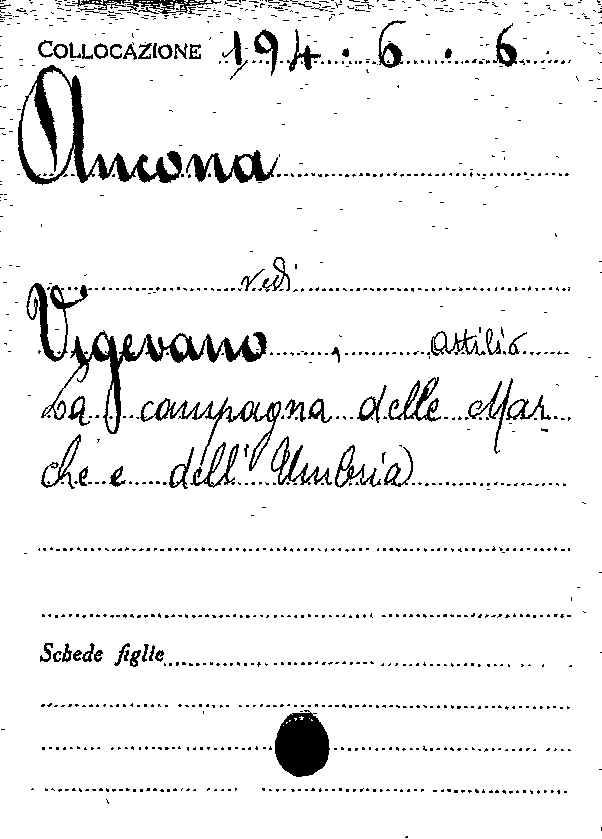 COLLOCAZIONE 194.6.6
Ancona
vedi
Vigevano, Attilio
La campagna delle Mar
che e dell'Umbria
Schede figlie